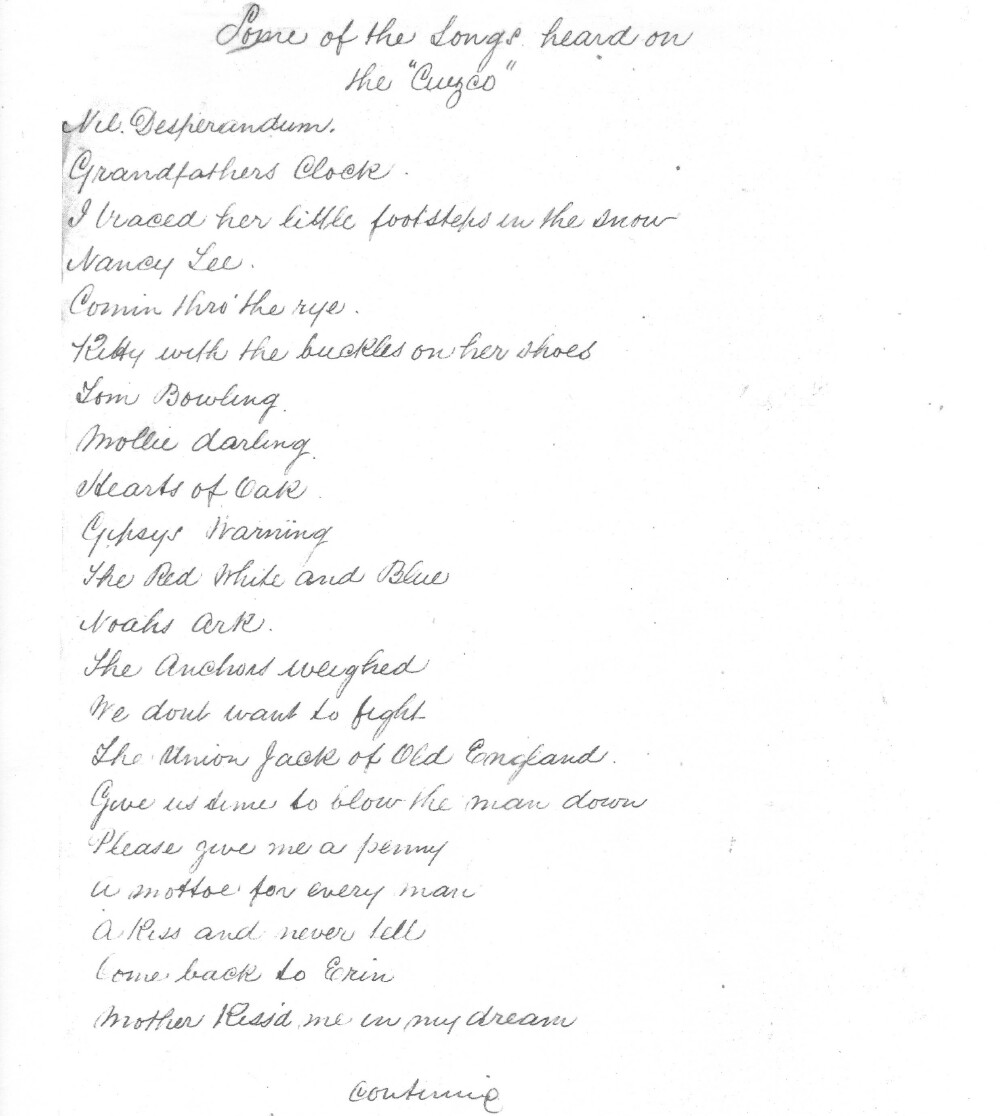 Some of the Songs heard on
the "Cuzco"
Nil. Desperandum.
Grandfathers Clock.
I traced her little footsteps in the snow
Nancy Lee.
Comin thro' the rye.
Kitty with the buckles on her shoes
Tom Bowling.
Mollie darling.
Hearts of Oak.
Gipsys Warning
The Red White and Blue
Noahs Ark.
The Anchors weighed
We dont want to fight
The Union Jack of Old England.
Give us time to blow the man down
Please give me a penny
A mottoe for every man
A Kiss and never tell
Come back to Erin
Mother Kiss'd me in my dream
continue